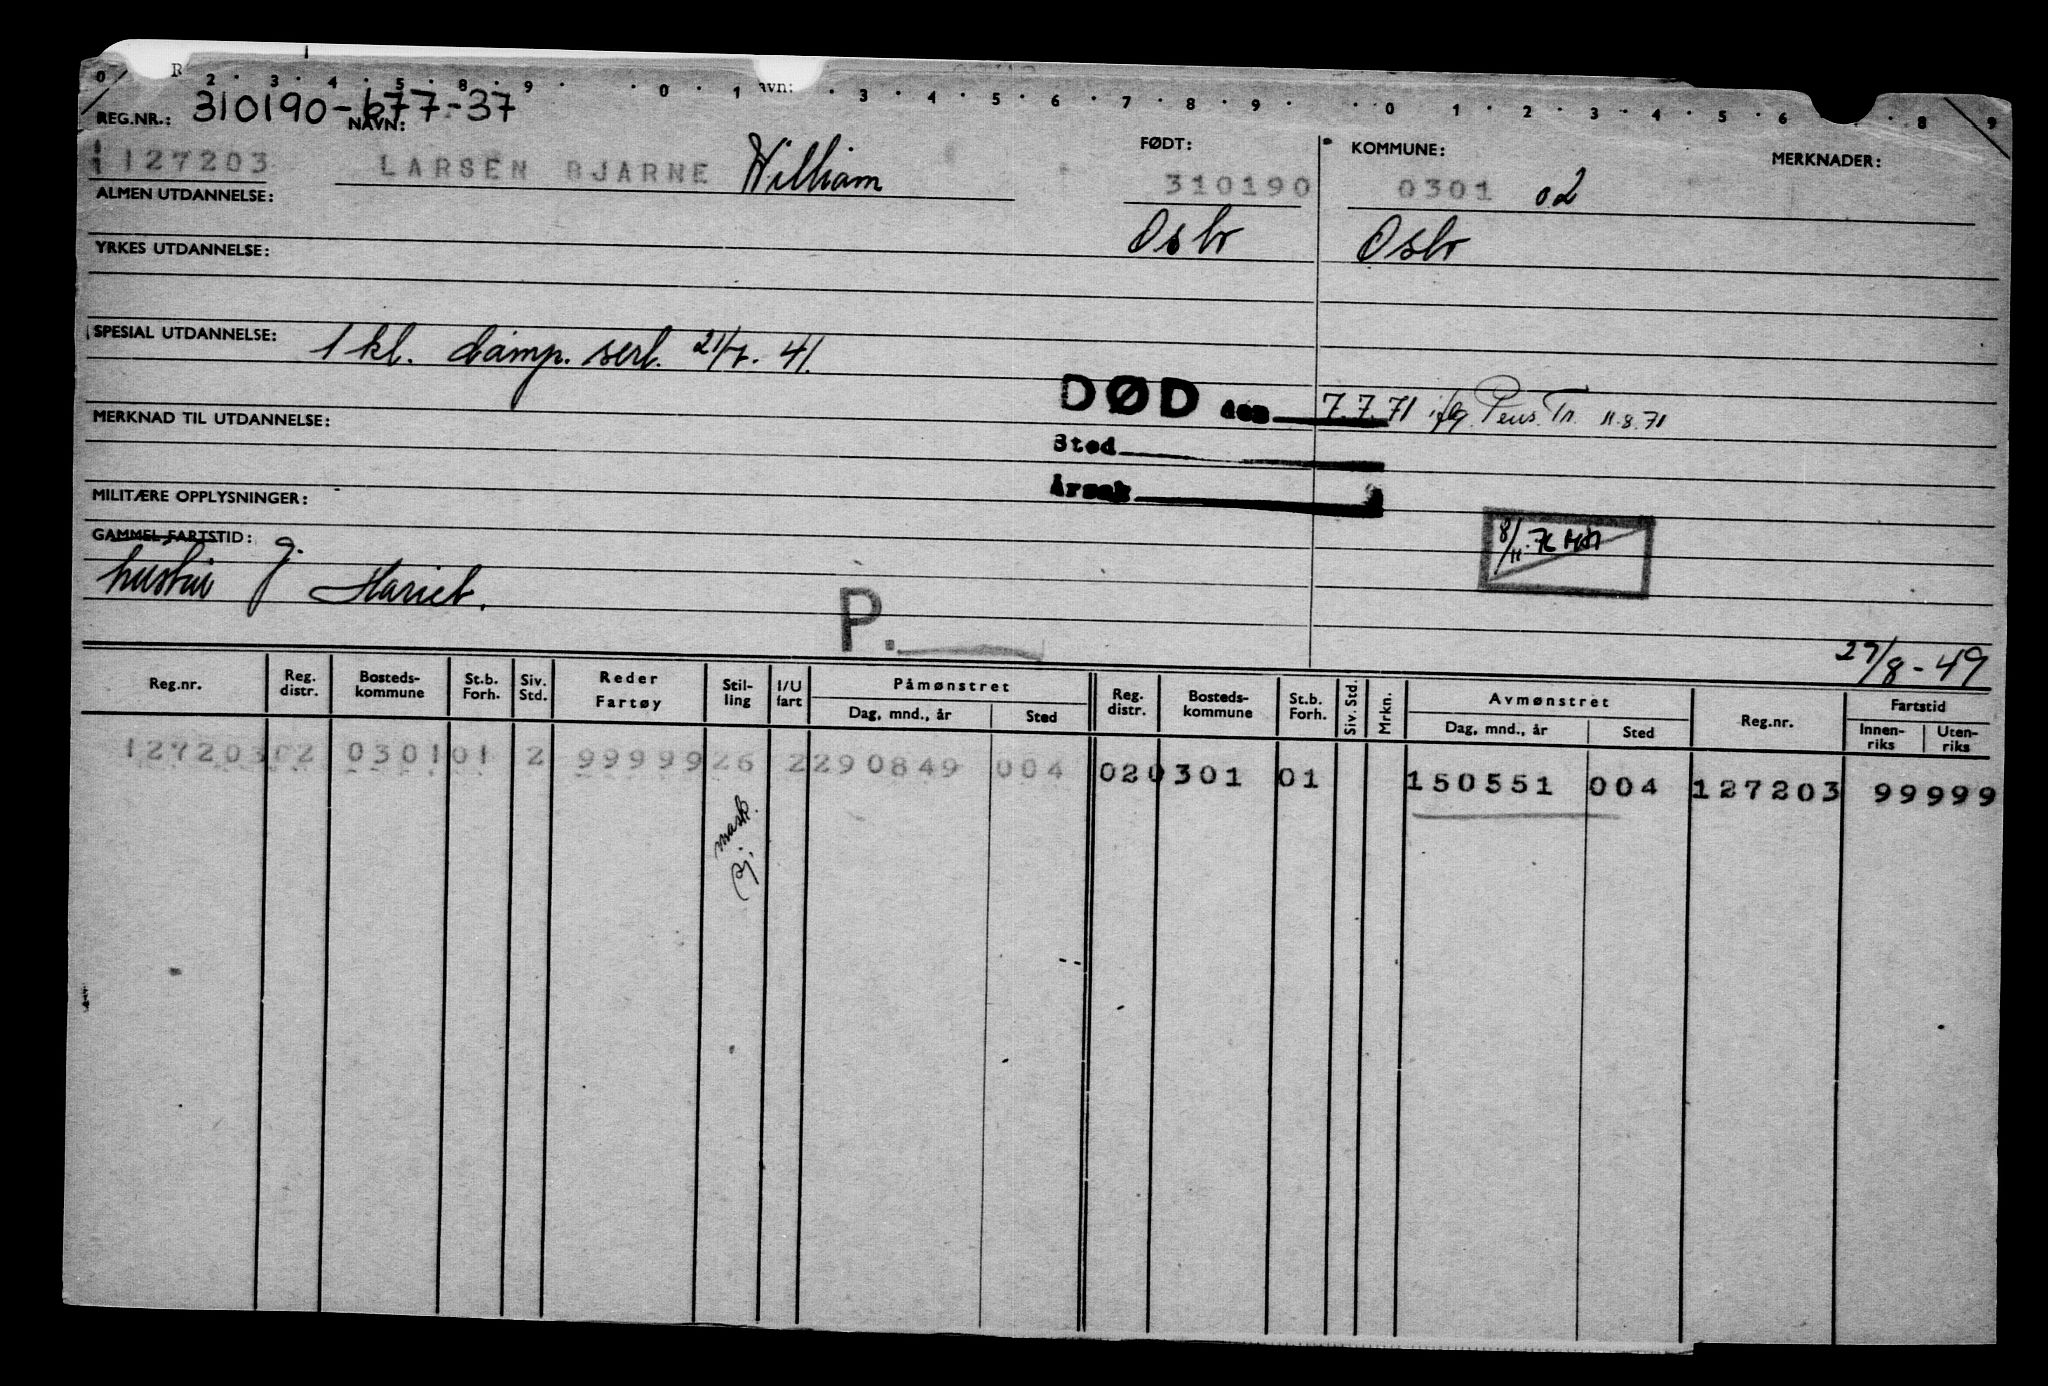 R avn:
0 2 · 3 · 4 · 5 · 8 · 9 · · 0 · 1 · 3 · 4 · 5 · 6 · 7 · 8 · 9 · · 0 · 1 · 2 · 3 · 4 · 5 · 6 · 8 9
REG.NR.: 310190-677-37
NAVN: FØDT: KOMMUNE: MERKNADER:
127203 LARSEN BJARNE William 310190 0301 02
ALMEN UTDANNELSE: Oslo Oslo
YRKES UTDANNELSE:
SPESIAL UTDANNELSE: 1 kl. damp. sert. 21/7. 41.
DØD den 7.7.71 iflg. Pens. Tr. 11.8.71
MERKNAD TIL UTDANNELSE:
Sted
Årsak
MILITÆRE OPPLYSNINGER:
8/11.76
GAMMEL FARTSTID: g.
hustru Hariet.
P.
29/8-49
Reg.nr. Reg. distr. Bosteds-kommune St.b. Forh. Siv. Std. Reder Fartøy Stil-ling I/U fart Påmønstret Dag, mnd., år Sted Reg. distr. Bosteds-kommune St.b. Forh. Siv. Std. Mrkn. Avmønstret Dag, mnd., år Sted Reg.nr. Fartstid Innen-riks Uten-riks
127203 02 0301 01 2 99999 26 2 290849 004 02 0301 01 150551 004 127203 99999
mask.